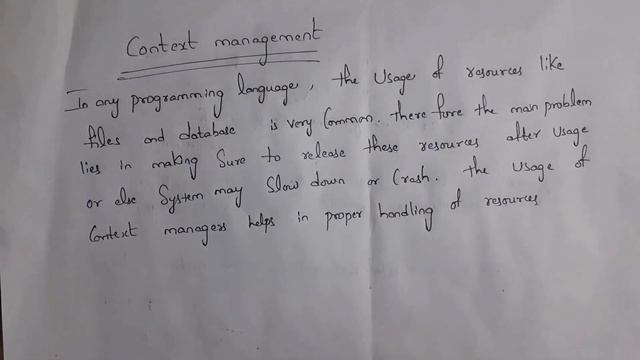 Context management
In any programming language, the Usage of resources like
files and database is very Common. there fore the main problem
lies in making Sure to release these resources after Usage
or else System may Slow down or Crash. the Usage of
Context managers helps in proper handling of resources